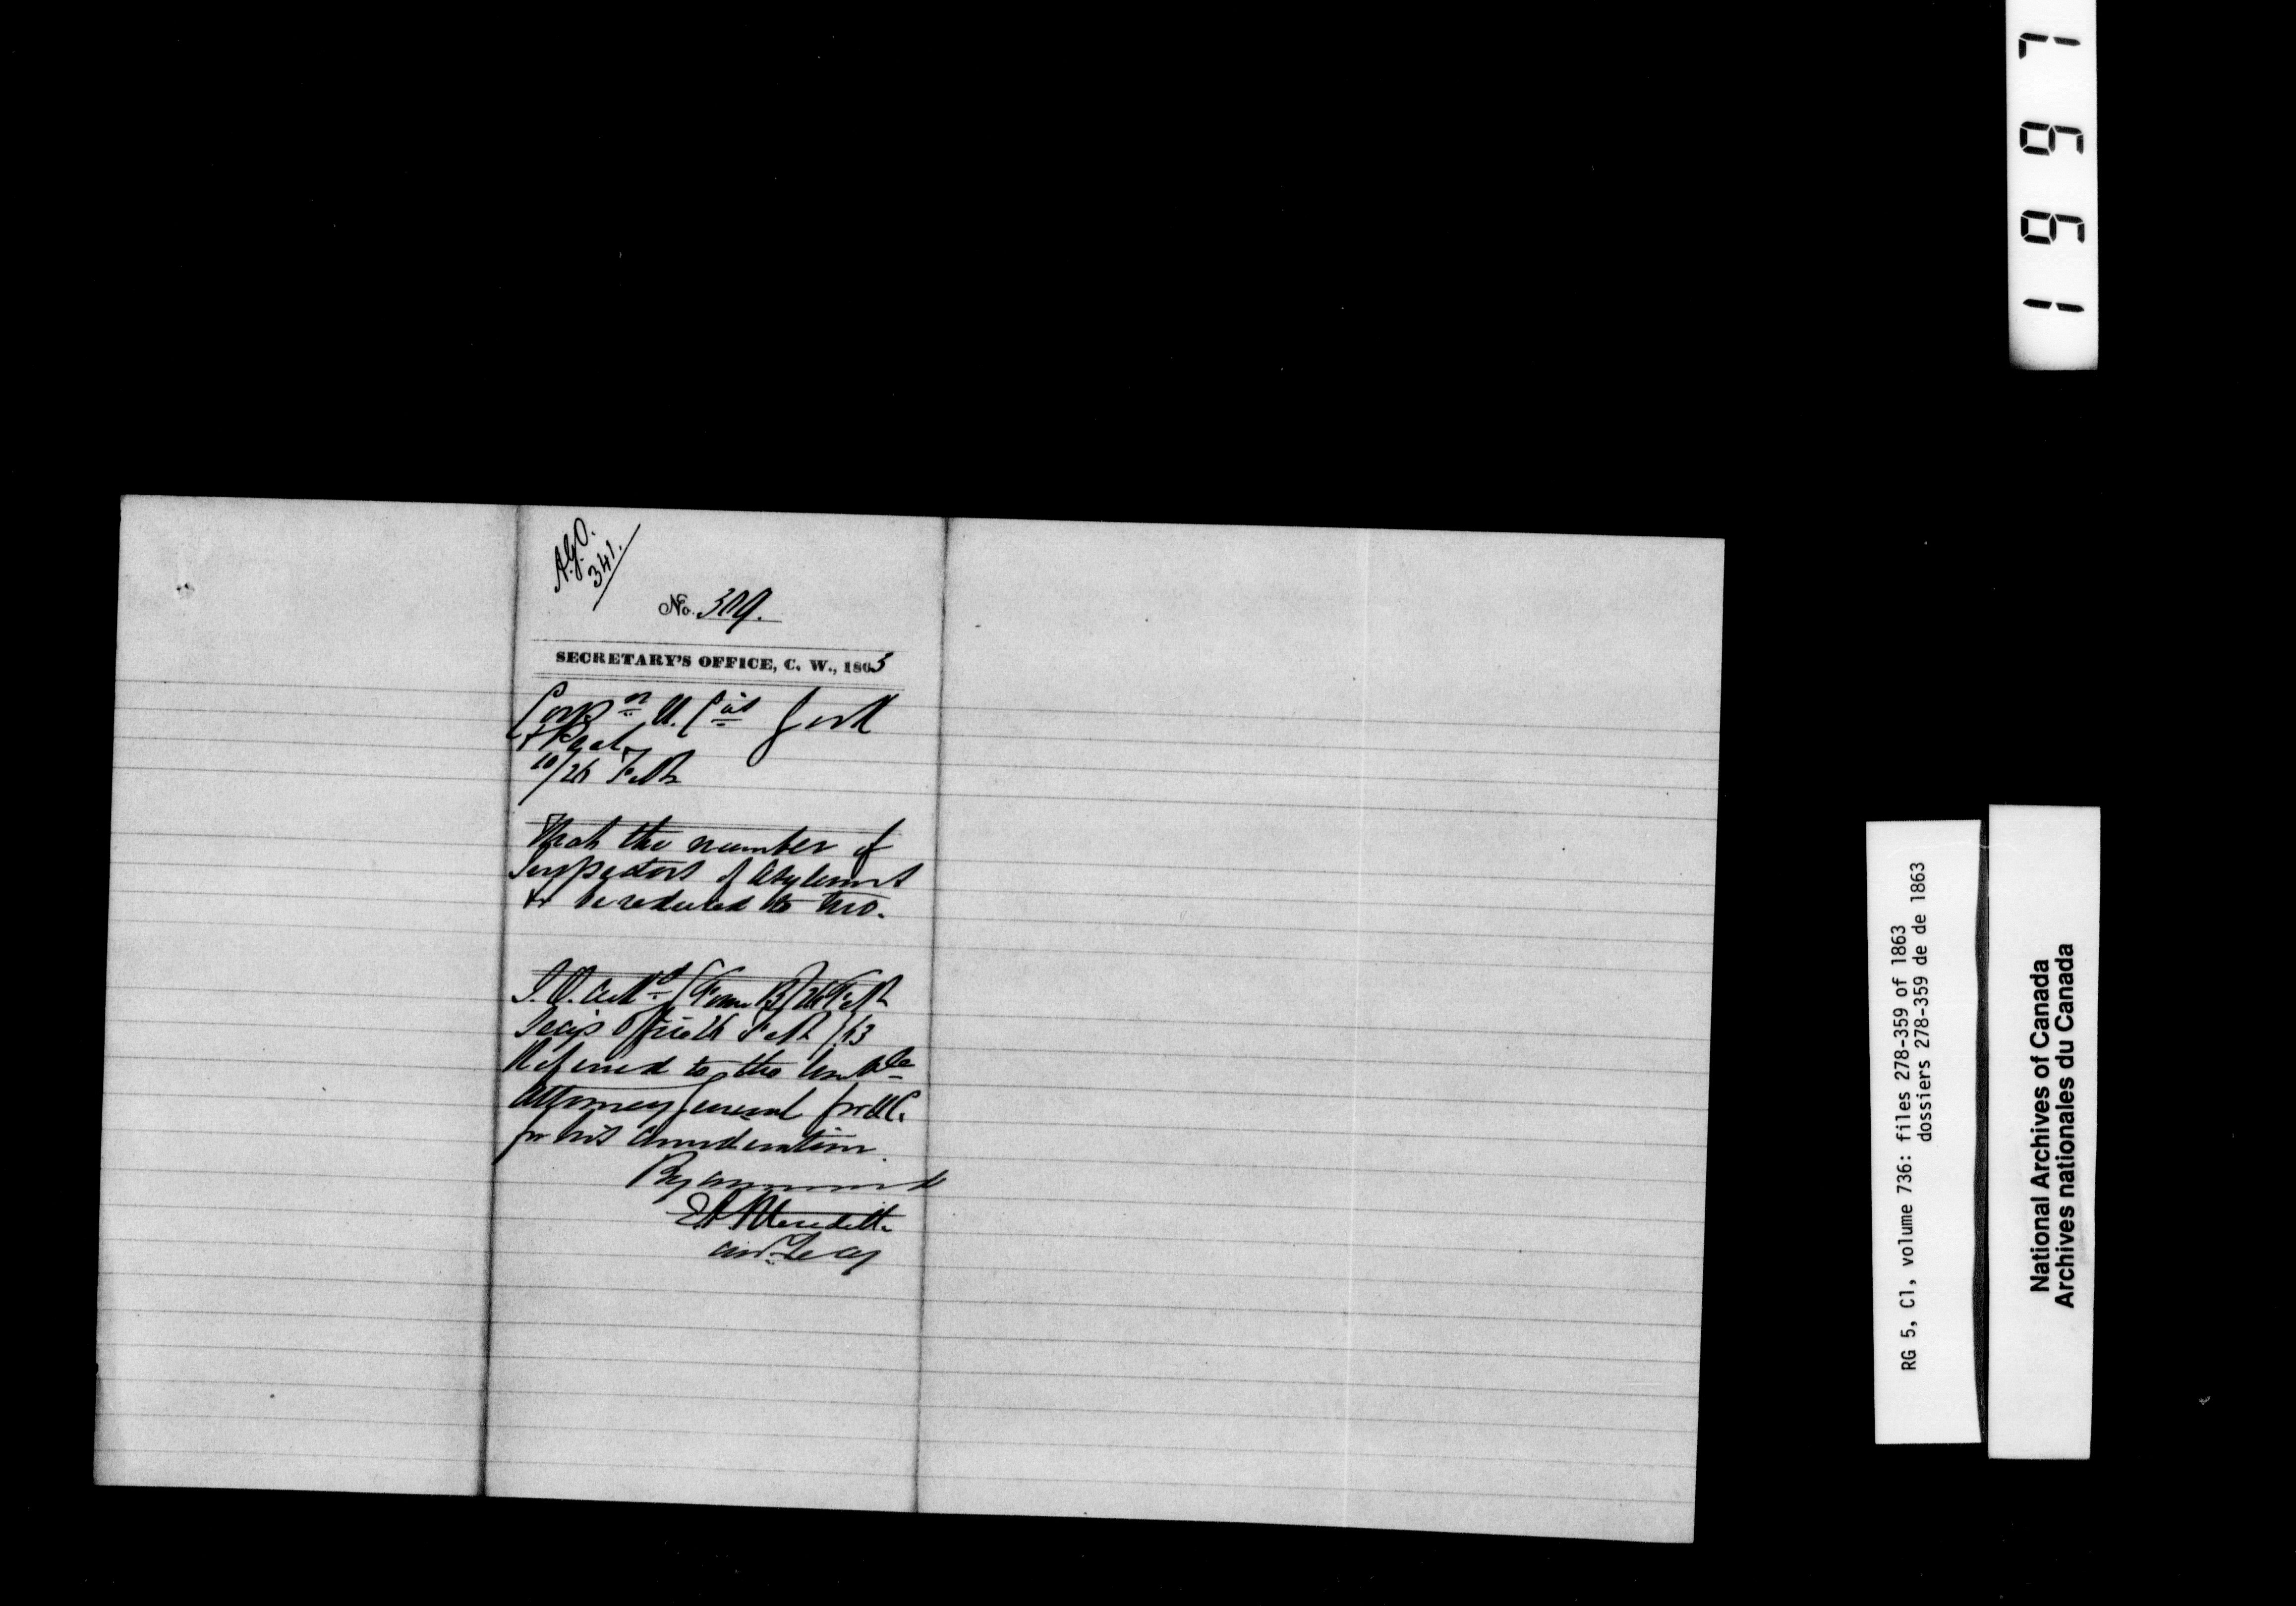 A.G.O.
341.
No. 309.
SECRETARY'S OFFICE, C. W., 1863
Corpn U. Cos York
& Peel
10/26 Feb
That the number of
Inspectors of Asylums
&c be reduced to two.
Form B/26 Feb
Secy's Office 26 Feb /63
Referred to the Honble
Attorney General for U.C.
for his consideration.
By command
E A Meredith
Asst Secy
1991
RG 5, C1, volume 736: files 278-359 of 1863
dossiers 278-359 de de 1863
National Archives of Canada
Archives nationales du Canada